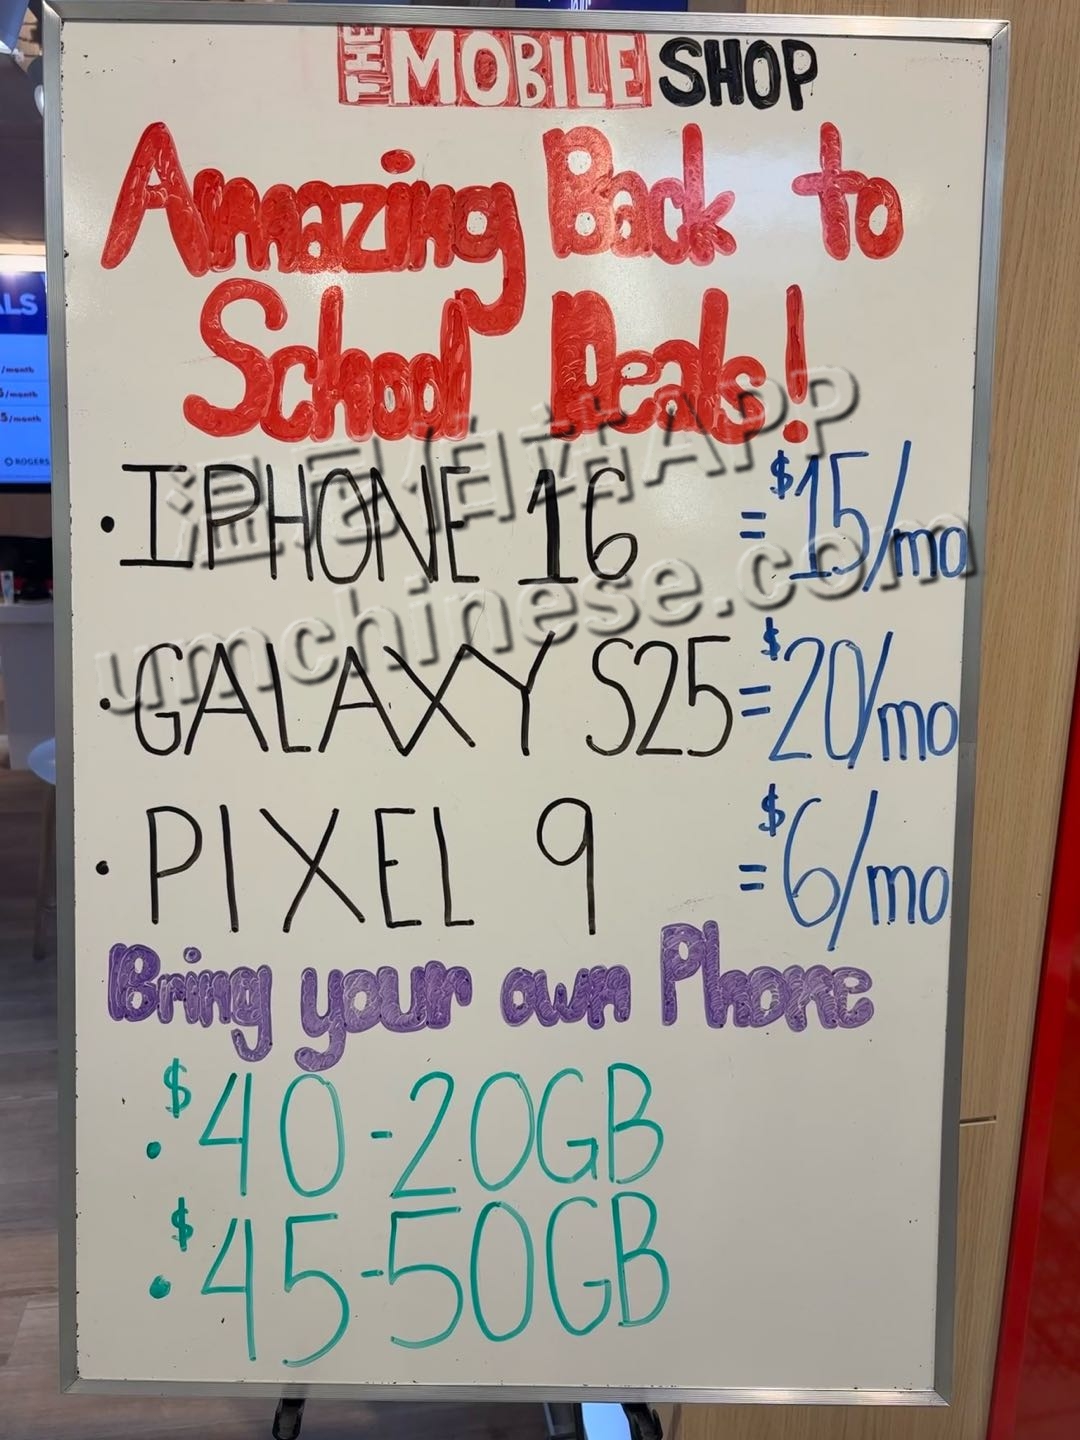 THE MOBILE SHOP
Amazing Back to
School Deals!
• IPHONE 16 = $15/mo
• GALAXY S25 = $20/mo
• PIXEL 9 = $6/mo
Bring your own Phone
• $40-20GB
• $45-50GB
温尼伯村APP
umchinese.com
/month
/month
5/month
ROGERS